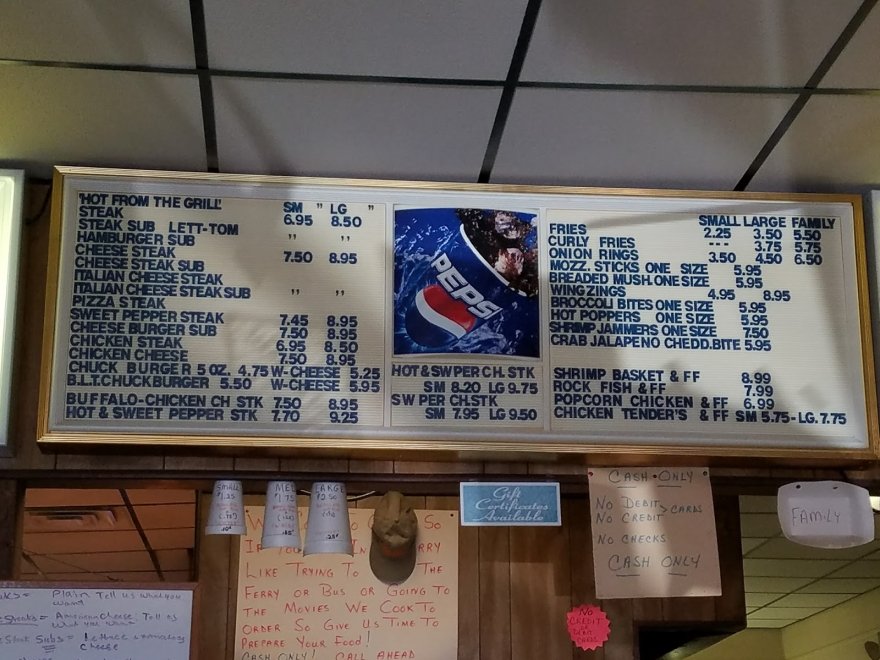 'HOT FROM THE GRILL' SM " LG "
STEAK 6.95 8.50
STEAK SUB LETT-TOM
HAMBURGER SUB " "
CHEESE STEAK 7.50 8.95
CHEESE STEAK SUB
ITALIAN CHEESE STEAK
ITALIAN CHEESE STEAK SUB " "
PIZZA STEAK
SWEET PEPPER STEAK 7.45 8.95
CHEESE BURGER SUB 7.50 8.95
CHICKEN STEAK 6.95 8.50
CHICKEN CHEESE 7.50 8.95
CHUCK BURGER 5 OZ. 4.75 W-CHEESE 5.25
B.L.T. CHUCK BURGER 5.50 W-CHEESE 5.95
BUFFALO-CHICKEN CH STK 7.50 8.95
HOT & SWEET PEPPER STK 7.70 9.25
PEPSI
HOT & SW PER CH. STK
SM 8.20 LG 9.75
SW PER CH STK
SM 7.95 LG 9.50
SMALL LARGE FAMILY
FRIES 2.25 3.50 5.50
CURLY FRIES --- 3.75 5.75
ONION RINGS 3.50 4.50 6.50
MOZZ. STICKS ONE SIZE 5.95
BREADED MUSH. ONE SIZE 5.95
WING ZINGS 4.95 8.95
BROCCOLI BITES ONE SIZE 5.95
HOT POPPERS ONE SIZE 5.95
SHRIMP JAMMERS ONE SIZE 7.50
CRAB JALAPENO CHEDD. BITE 5.95
SHRIMP BASKET & FF 8.99
ROCK FISH & FF 7.99
POPCORN CHICKEN & FF 6.99
CHICKEN TENDER'S & FF SM 5.75 - LG. 7.75
SMALL
$1.25
MED
$1.75
LARGE
$2.50
Gift
Certificates
Available
CASH ONLY
NO DEBIT
NO CREDIT > CARDS
NO CHECKS
CASH ONLY
FAMILY
SO
IF YOU
LIKE TRYING TO THE
FERRY OR BUS OR GOING TO
THE MOVIES WE COOK TO
ORDER SO GIVE US TIME TO
PREPARE YOUR FOOD!
CASH ONLY! CALL AHEAD
NO
CREDIT
OR
DEBIT
CARDS
= Plain Tell us what you
want
Steaks = American Cheese Tell us
what you want
Steak Subs = Lettuce & tomatoes
cheese